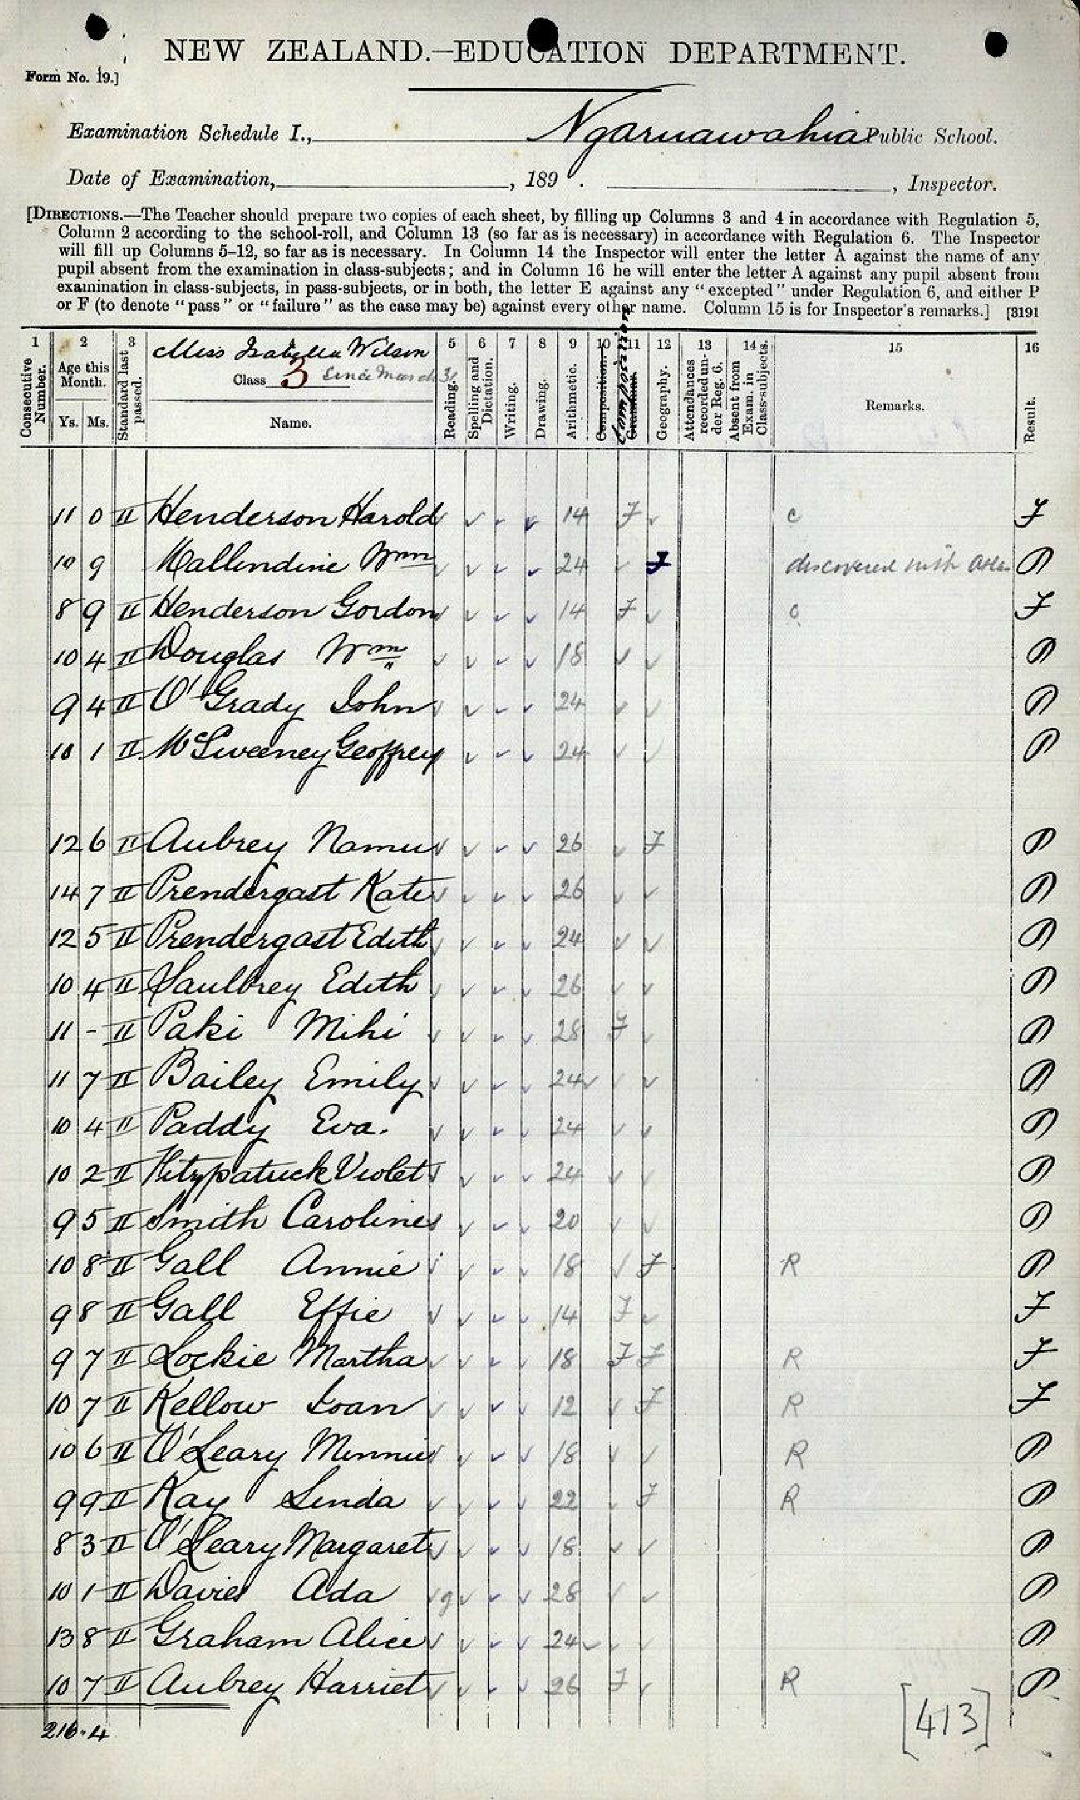 NEW ZEALAND.—EDUCATION DEPARTMENT.
Form No. 19.]
Examination Schedule I., Ngaruawahia Public School.
Date of Examination, , 189 . , Inspector.
[DIRECTIONS.—The Teacher should prepare two copies of each sheet, by filling up Columns 3 and 4 in accordance with Regulation 5,
Column 2 according to the school-roll, and Column 13 (so far as is necessary) in accordance with Regulation 6. The Inspector
will fill up Columns 5–12, so far as is necessary. In Column 14 the Inspector will enter the letter A against the name of any
pupil absent from the examination in class-subjects; and in Column 16 he will enter the letter A against any pupil absent from
examination in class-subjects, in pass-subjects, or in both, the letter E against any "excepted" under Regulation 6, and either P
or F (to denote "pass" or "failure" as the case may be) against every other name. Column 15 is for Inspector's remarks.] [8191
1 2 3 Miss Isabella Wilson 5 6 7 8 9 10 11 12 13 14 15 16
Class 3 Since March 31
Consecutive Number. Age this Month. Ys. Ms. Standard last passed. Name. Reading. Spelling and Dictation. Writing. Drawing. Arithmetic. Composition. Grammar. Composition Geography. Attendances recorded under Reg. 6. Absent from Exam. in Class-subjects. Remarks. Result.
11 0 II Henderson Harold ✓ ✓ ✓ ✓ 14 F ✓ c F
10 9 Mallendine Wm ✓ ✓ ✓ ✓ 24 ✓ F discovered with P
8 9 II Henderson Gordon ✓ ✓ ✓ ✓ 14 F ✓ c F
10 4 II Douglas Wm ✓ ✓ ✓ ✓ 18 ✓ ✓ P
9 4 II O'Grady John ✓ ✓ ✓ ✓ 24 ✓ ✓ P
10 1 II McSweeney Geoffrey ✓ ✓ ✓ ✓ 24 ✓ ✓ P
12 6 II Aubrey Namu ✓ ✓ ✓ ✓ 26 ✓ F P
14 7 II Prendergast Kate ✓ ✓ ✓ ✓ 26 ✓ ✓ P
12 5 II Prendergast Edith ✓ ✓ ✓ ✓ 24 ✓ ✓ P
10 4 II Saulbrey Edith ✓ ✓ ✓ ✓ 26 ✓ ✓ P
11 - II Paki Mihi ✓ ✓ ✓ ✓ 28 F ✓ P
11 7 II Bailey Emily ✓ ✓ ✓ ✓ 24 ✓ ✓ ✓ P
10 4 II Paddy Eva. ✓ ✓ ✓ ✓ 24 ✓ ✓ P
10 2 II Fitzpatrick Violet ✓ ✓ ✓ ✓ 24 ✓ ✓ P
9 5 II Smith Caroline ✓ ✓ ✓ ✓ 20 ✓ ✓ P
10 8 II Gall Annie ✓ ✓ ✓ ✓ 18 ✓ F R P
9 8 II Gall Effie ✓ ✓ ✓ ✓ 14 F ✓ F
9 7 II Lockie Martha ✓ ✓ ✓ ✓ 18 F F R F
10 7 II Kellow Joan ✓ ✓ ✓ ✓ 12 ✓ F R F
10 6 II O'Leary Minnie ✓ ✓ ✓ ✓ 18 ✓ ✓ R P
9 9 II Kay Linda ✓ ✓ ✓ ✓ 22 ✓ F R P
8 3 II O'Leary Margaret ✓ ✓ ✓ ✓ 18 ✓ ✓ P
10 1 II Davies Ada ✓ g ✓ ✓ 28 ✓ ✓ P
13 8 II Graham Alice ✓ ✓ ✓ ✓ 24 ✓ ✓ ✓ P
10 7 II Aubrey Harriet ✓ ✓ ✓ ✓ 26 F ✓ R P
216.4
[413]